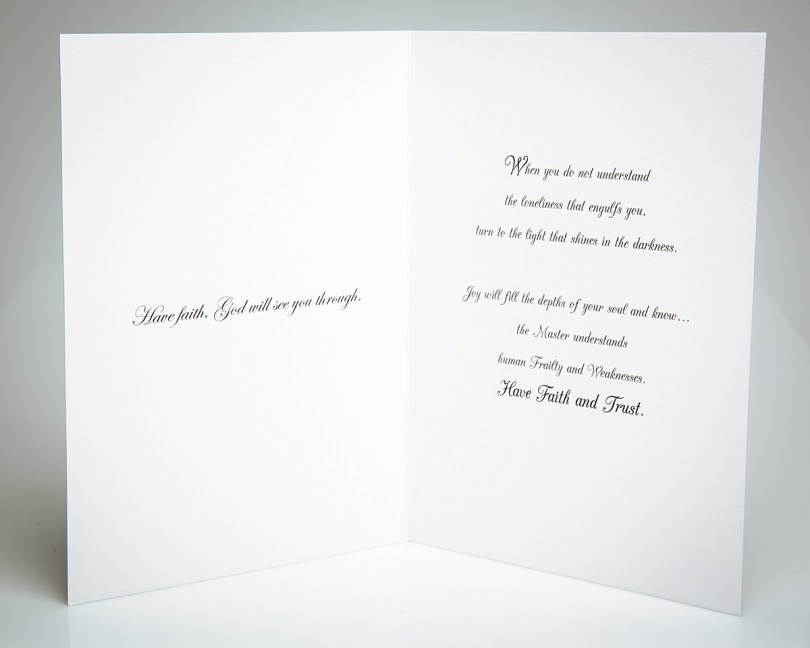 Have faith, God will see you through.
When you do not understand
the loneliness that engulfs you,
turn to the light that shines in the darkness.
Joy will fill the depths of your soul and know...
the Master understands
human Frailty and Weaknesses.
Have Faith and Trust.